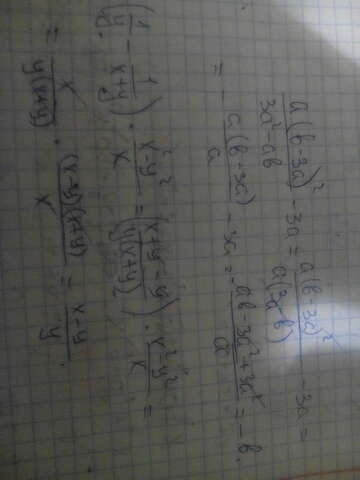 a(b-3a)² / 3a²-ab - 3a = a(b-3a)² / a(3a-b) - 3a =
= - a(b-3a) / a - 3a = - ab-3a²+3a² / a = -b.
(1/y - 1/x+y) · x²-y² / x = (x+y-y / y(x+y)) · x²-y² / x =
= x / y(x+y) · (x-y)(x+y) / x = x-y / y